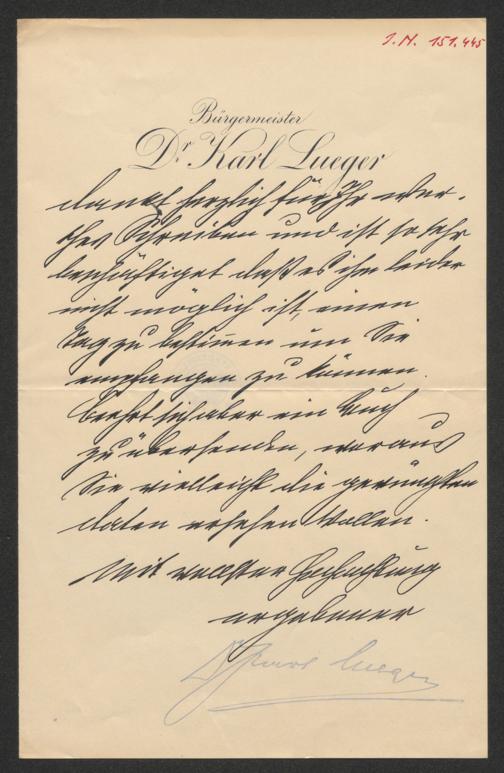 I.N. 151.445
Bürgermeister
Dr. Karl Lueger
dankt herzlich für Ihr wer-
thes Schreiben und ist so sehr
beschäftiget daß es ihm leider
nicht möglich ist, einen
Tag zu bestimmen um Sie
empfangen zu können.
Beehrt sich aber ein Buch
zu übersenden, woraus
Sie vielleicht die
daten ersehen wollen.
Mit vollster Hochachtung
ergebener
Dr Karl Lueger